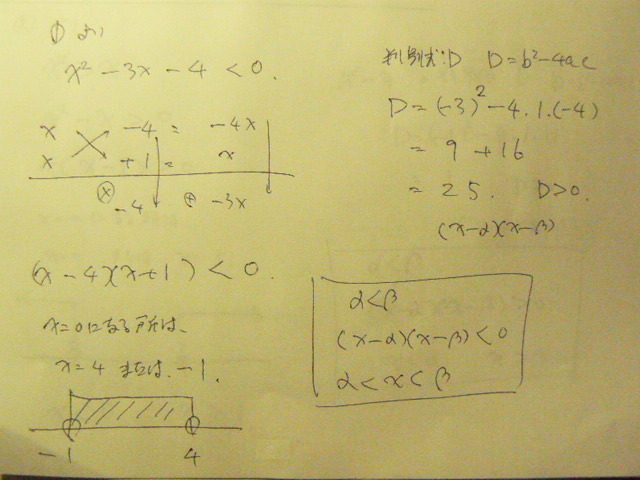 ① より
x² - 3x - 4 < 0.
x -4 = -4x
x +1 = x
⊗ -4 ⊕ -3x
(x - 4)(x+1) < 0.
x=0になる所は、
x=4 または、-1.
-1 4
判別式:D D=b²-4ac
D=(-3)²-4.1.(-4)
= 9 +16
= 25. D>0.
(x-α)(x-β)
α<β
(x-α)(x-β)<0
α<x<β